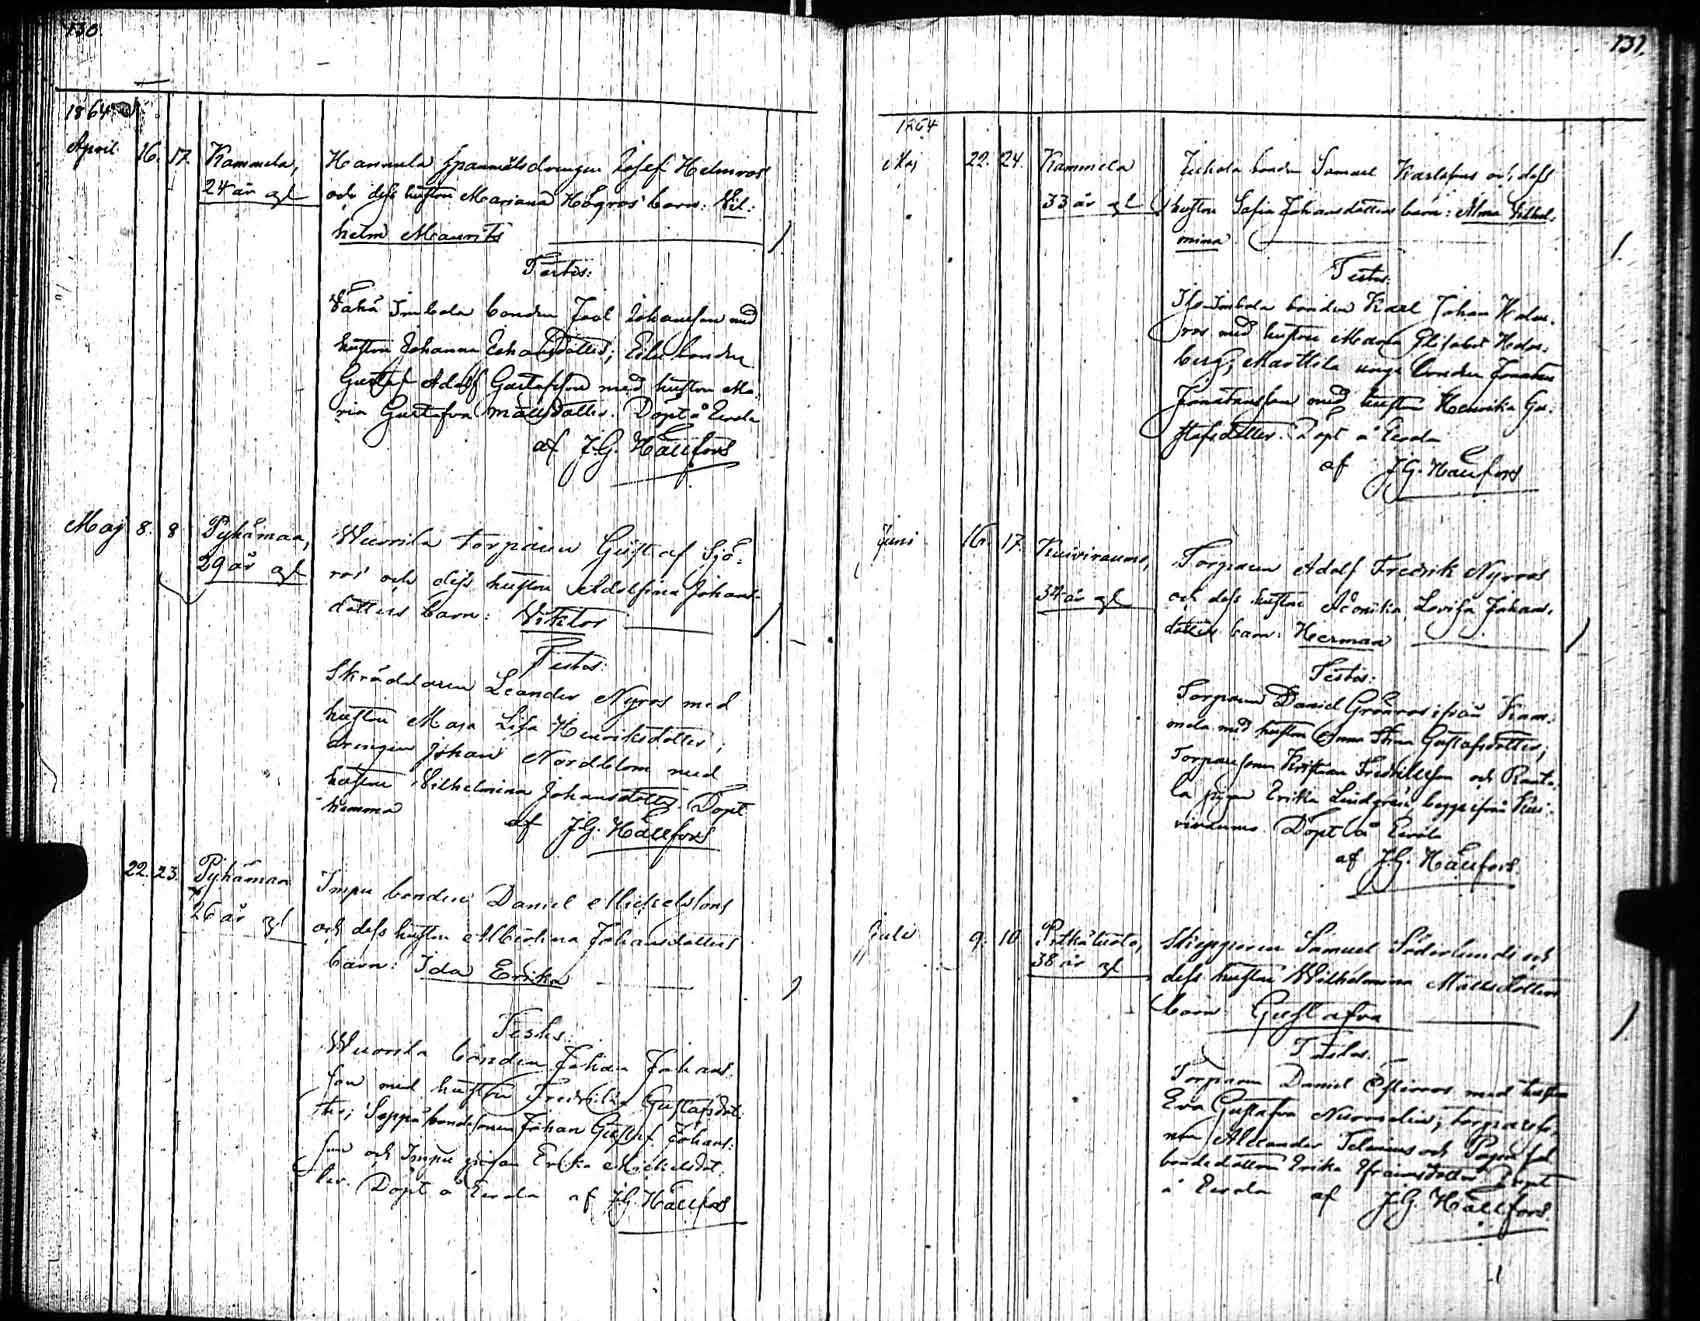 130.
1864
April 16. 17. Kammela, 24 år gl
Hannula spannmålsdrengen Josef Helmros
och dess hustru Mariana Högros' barn: Vil-
helm Maurits
Testes:
Vähä Simbola bonden Joel Johansson med
hustru Johanna Johansdotter; Eila bonden
Gustaf Adolf Gustafsson med hustru Ma-
ria Gustafva Mattsdotter. Döpt å Eerola
af J.G. Hällfors
Maj 8. 8 Pyhämaa, 29 år gl
Wuorila torparen Gustaf Sjö-
ros' och dess hustru Adolfina Johans-
dotters barn: Viktor
Testes:
Skräddaren Leander Nyros med
hustru Maja Lisa Henriksdotter;
drengen Johan Nordblom med
hustru Vilhelmina Johansdotter Döpt
hemma af J.G. Hällfors
22. 23. Pyhämaa 26 år gl
Impu bonden Daniel Michelssons
och dess hustru Albertina Johansdotters
barn: Ida Erika
Testes:
Wuorila bonden Johan Johans-
son med hustru Fredrika Gustafsdot-
ter; Seppä bondesonen Johan Gustaf Johans-
son och Impu pigan Erika Mickelsdot-
ter. Döpt å Eerola af J.G. Hällfors
131.
1864
Maj 22. 24. Kammela 33 år gl
bonden Samuel Karlssons och dess
hustru Safia Johansdotters barn: Alma Vilhel-
mina
Testes:
Iso-Simbola bonden Karl Johan Helm-
ros med hustru Maria Elisabet Hed-
berg; Marttila unge bonden Jonatan
Jonatansson med hustru Henrika Gu-
stafsdotter. Döpt å Eerola
af J.G. Hällfors
Juni 16. 17. Kuivirauma, 34 år gl
Torparen Adolf Fredrik Nyroos
och dess hustru Lovisa Johans-
dotters barn: Herman
Testes:
Torparen Daniel Grönros ifrån Kam-
mela med hustru Anna Stina Gustafsdotter;
Torparesonen Kristian Fredriksson och
la pigan Erika Lindgren begge ifrån Kui-
virauma. Döpt å Eerola
af J.G. Hällfors.
Juli 9. 10 Pitkäluoto, 38 år gl
Skepparen Samuel Söderlunds och
dess hustru Wilhelmina Mattsdotters
barn Gustafva
Testes:
Torparen Daniel Österros med hustru
Eva Gustafva Nurmelin; torpareso-
nen Alexander Telenius och
bondedottren Erika Efraimsdotter Döpt
å Eerola af J.G. Hällfors